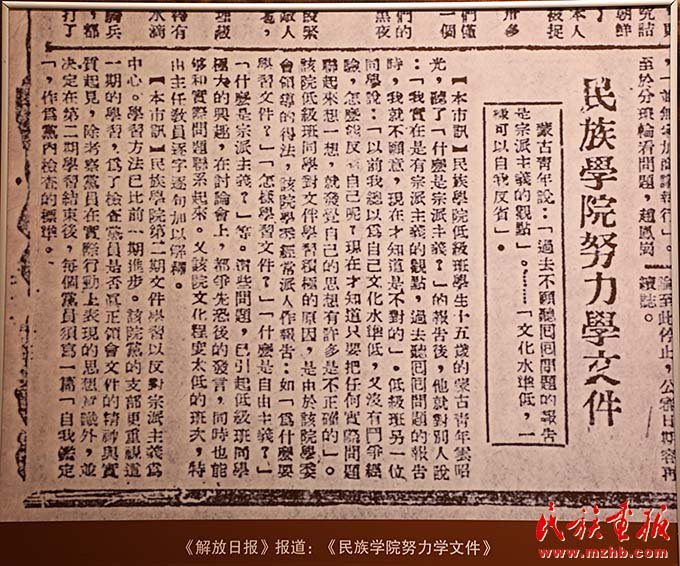 至於分班輪看問題，趙鳳崗
論至此停止，公審日期容再
續誌。
民族學院努力學文件
蒙古青年說：「過去不願聽回回問題的報告
是宗派主義的觀點」。……「文化水準低，一
樣可以自我反省」。
【本市訊】民族學院低級班學生十五歲的蒙古青年雲昭
光，聽了「什麼是宗派主義？」的報告後，他就對別人說
：「我實在是有宗派主義的觀點，過去聽回回問題的報告
時，我就不願意，現在才知道是不對的」。低級班另一位
同學說：「以前我總以爲自己文化水準低，又沒有鬥爭經
驗，怎麼能反省自己呢？現在才知道只要把任何實際問題
聯起來想一想，就發覺自己的思想有許多是不正確的」。
該院低級班同學對文件學習積極的原因，是由於該院學委
會領導的得法，該院學委經常派人作報告：如「爲什麼要
學習文件？」「怎樣學習文件？」「什麼是自由主義？」
「什麼是宗派主義？」等。這些問題，已引起低級班同學
極大的興趣，在討論會上，都爭先恐後的發言，同時也能
夠和實際問題聯系起來。又該院文化程度太低的班次，特
由主任教員逐字逐句加以解釋。
【本市訊】民族學院第二期文件學習以反對宗派主義爲
中心。學習方法已比前一期進步。該院黨的支部更重視這
一期的學習，爲了檢查黨員是否眞正領會文件的精神與實
質起見，除考察黨員在實際行動上表現的思想意識外，並
決定在第二期學習結束後，每個黨員須寫一篇「自我鑑定
」，作爲黨內檢查的標準。
《解放日报》报道：《民族学院努力学文件》
民族画报
www.mzhb.com